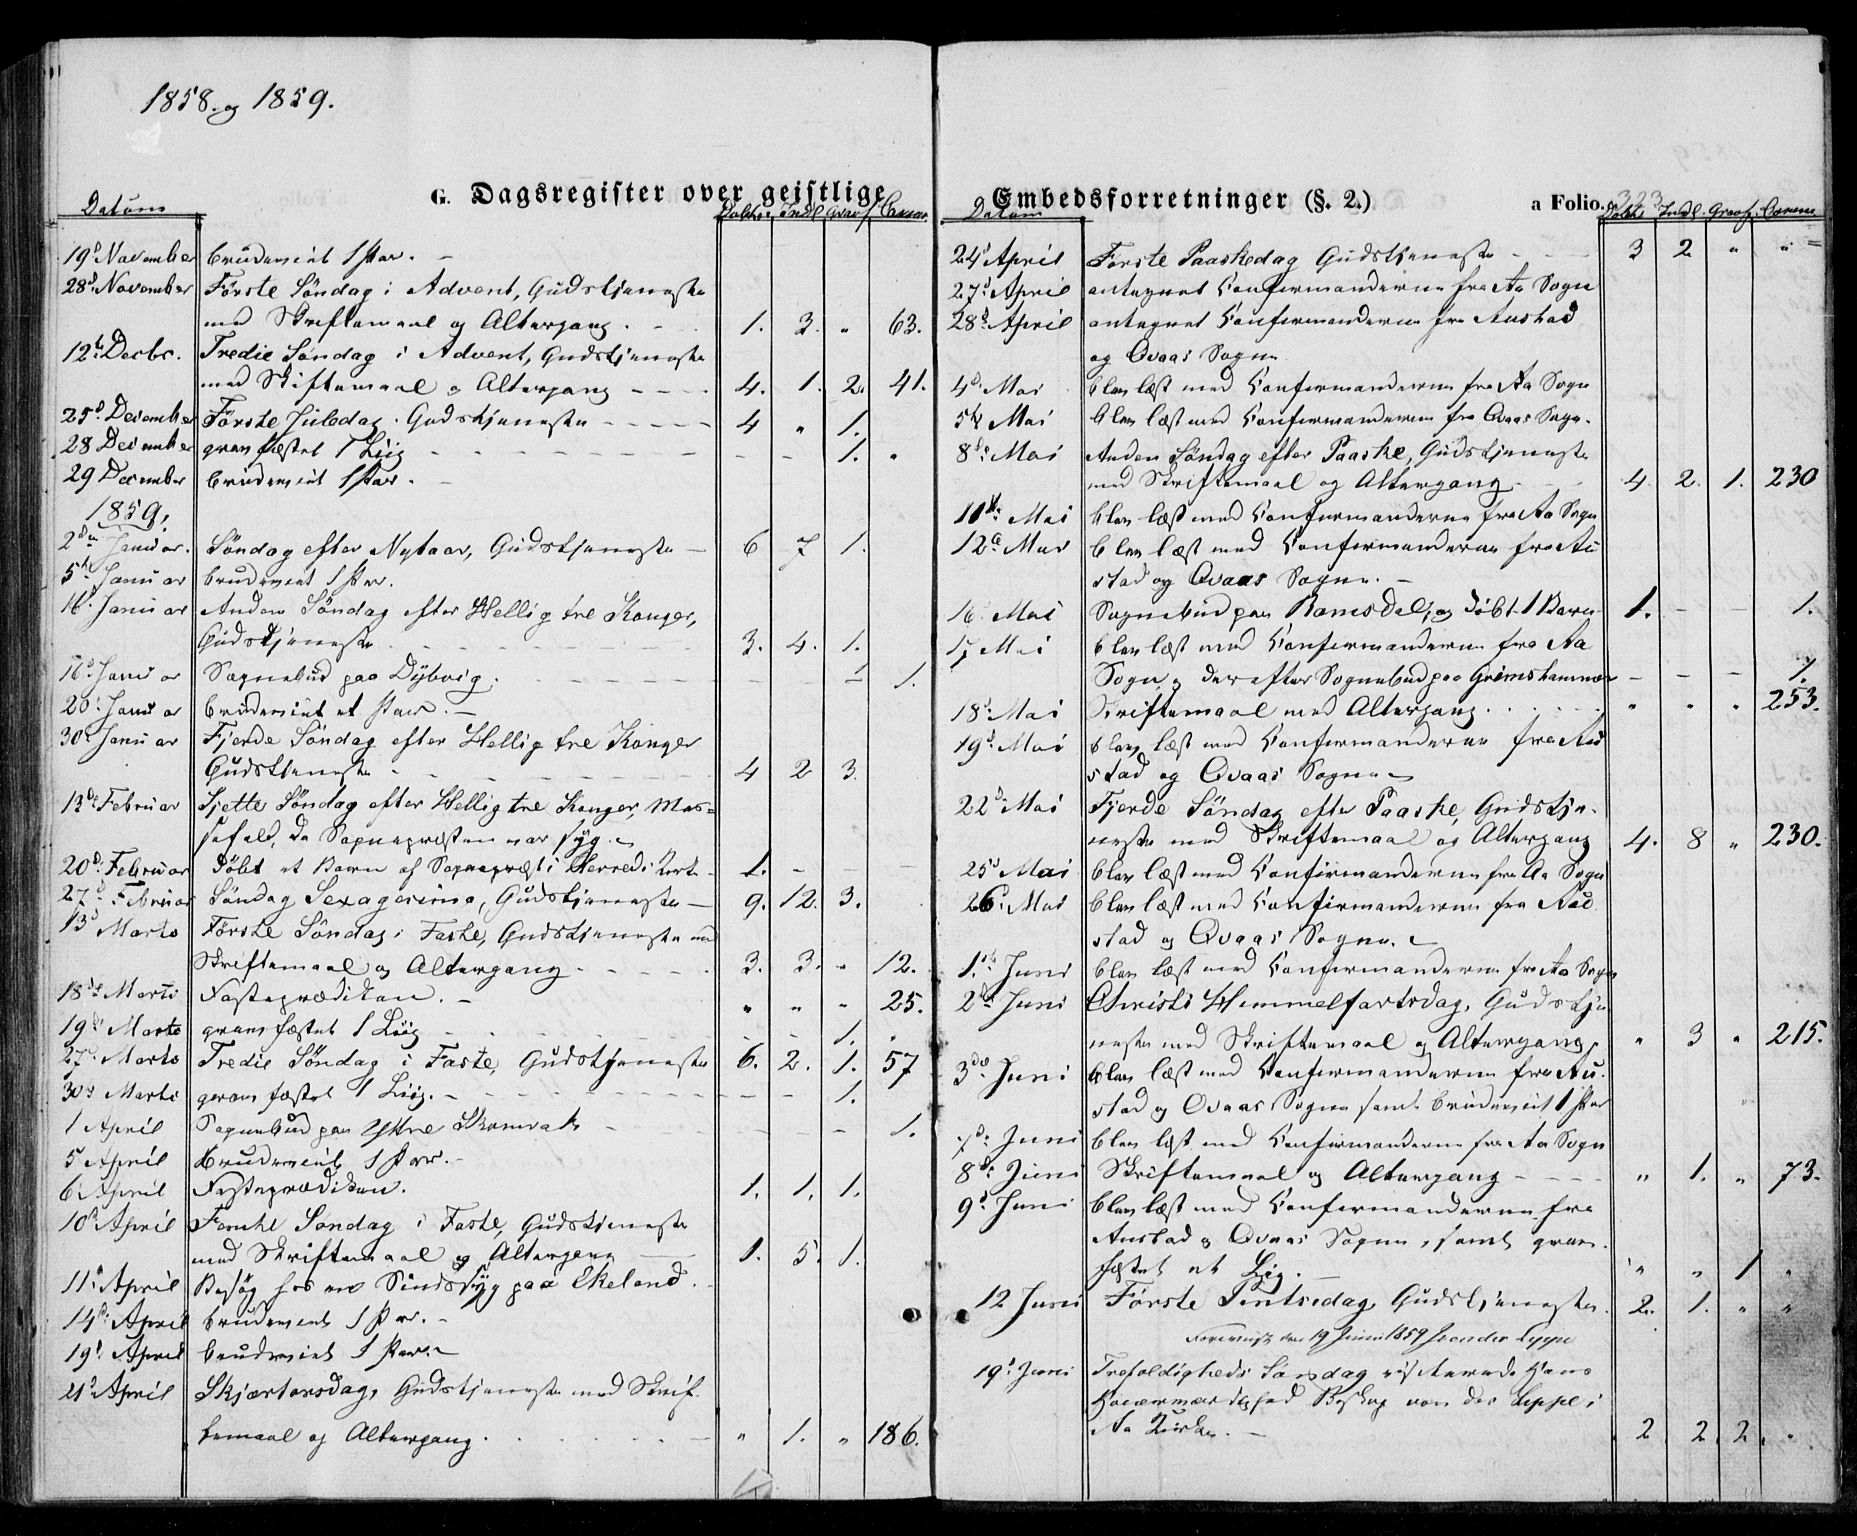 1858. og 1859.
G. Dagsregister over geistlige
Datum Døbte Indl. Gravf. Comm.
19d November brudeviet 1 Par. -
28d November Første Søndag i Advent, Gudstjeneste
med Skriftemaal og Altergang. 1. 3. " 63.
12te Decbr. Tredie Søndag i Advent, Gudstjeneste
med Skriftemaal og Altergang 4. 1. 2. 41.
25d December Første Juledag. Gudstjeneste 4 " 1.
28 December gravfæstet 1 Liig - - 1. "
29 December brudeviet 1 Par. -
1859.
2den Januar. Søndag efter Nytaar, Gudstjeneste 6 7 1.
5te Januar brudeviet 1 Par.
16d Januar Anden Søndag efter Hellig tre Konger,
Gudstjeneste 3. 4. 1.
16d Januar Sognebud paa Dybvig. - - - 1.
20d Januar brudeviet et Par. -
30d Januar Fjerde Søndag efter Hellig tre Konger
Gudstjeneste 4 2 3.
13de Februar Sjette Søndag efter Hellig tre Konger, Mes=
sefald, da Sognepræsten var syg. -
20d Februar Døbt et Barn af Sognepræst i Herreds Kirke 1. - -
27d Februar Søndag Sexagesima, Gudstjeneste 9. 12. 3.
13d Marts Første Søndag i Faste, Gudstjeneste med
Skriftemaal og Altergang 3. 3. " 12.
18de Marts Fasteprædiken. - " " " 25.
19de Marts gravfæstet 1 Liig - - 1. "
27d Marts Tredie Søndag i Faste, Gudstjeneste 6. 2. 1. 57
30d Marts gravfæstet 1 Liig. - - 1.
1 April Sognebud paa Yttre - - - 1.
5 April brudeviet 1 Par. -
6 April Fasteprædiken. 1. 1. 1.
10d April Femte Søndag i Faste, Gudstjeneste
med Skriftemaal og Altergang 1. 5. 1.
11d April Besøg hos en Sindssyg paa Ekeland.
14de April brudeviet 1 Par. -
19d April brudeviet 1 Par. -
21d April Skjærtorsdag, Gudstjeneste med Skrif-
temaal og Altergang. " 1. " 186.
Embedsforretninger (§. 2.)
a Folio. 323
Datum Døbte Indl. Gravf. Comm.
24d April Første Paaskedag Gudstjeneste 3 2 " "
27d April antegnet Confirmanderne fra Aa Sogn
28d April antegnet Confirmanderne fra Austad
og Qvaas Sogne
4d Mai blev læst med Confirmanderne fra Aa Sogn
5te Mai blev læst med Confirmanderne fra Qvaas Sogn.
8de Mai Anden Søndag efter Paaske, Gudstjeneste
med Skriftemaal og Altergang. 4. 2. 1. 230
11te Mai blev læst med Confirmanderne fra Aa Sogn
12te Mai blev læst med Confirmanderne fra Au
stad og Qvaas Sogne. -
16. Mai Sognebud paa Ramsdal, og døbt 1 Barn 1. - - 1.
17 Mai blev læst med Confirmanderne fra Aa
Sogn, og derefter Sognebud paa Grimshammer - - - 1.
18d Mai Skriftemaal med Altergang. " " " 253.
19d Mai blev læst med Confirmanderne fra Au
stad og Qvaas Sogne -
22d Mai Fjerde Søndag efter Paaske, Gudstje-
neste med Skriftemaal og Altergang 4. 8 " 230.
25d Mai blev læst med Confirmanderne fra Aa Sogn
26d Mai blev læst med Confirmanderne fra Au
stad og Qvaas Sogne. -
1ste Juni blev læst med Confirmanderne fra Aa Sogn
2den Juni Christi Himmelfartsdag, Gudstje
neste med Skriftemaal og Altergang, " 3 " 215.
3die Juni blev læst med Confirmanderne fra Au.
stad og Qvaas Sogne samt brudeviet 1 Par
7de Juni blev læst med Confirmanderne fra Aa Sogn
8de Juni Skriftemaal og Altergang " 1. " 73.
9d Juni blev læst med Confirmanderne fra
Austad og Qvaas Sogne, samt grav-
fæstet et Lig. - " " 1 "
12 Juni Første Pintsedag, Gudstjeneste. 2. 1. " "
den 19 Juni 1859 von der Lippe
19d Juni Trefoldigheds Søndag visiterede Hans
Høiærværdighed Biskop von der Lippe i
Aa Kirke. - 2 2. 2. "